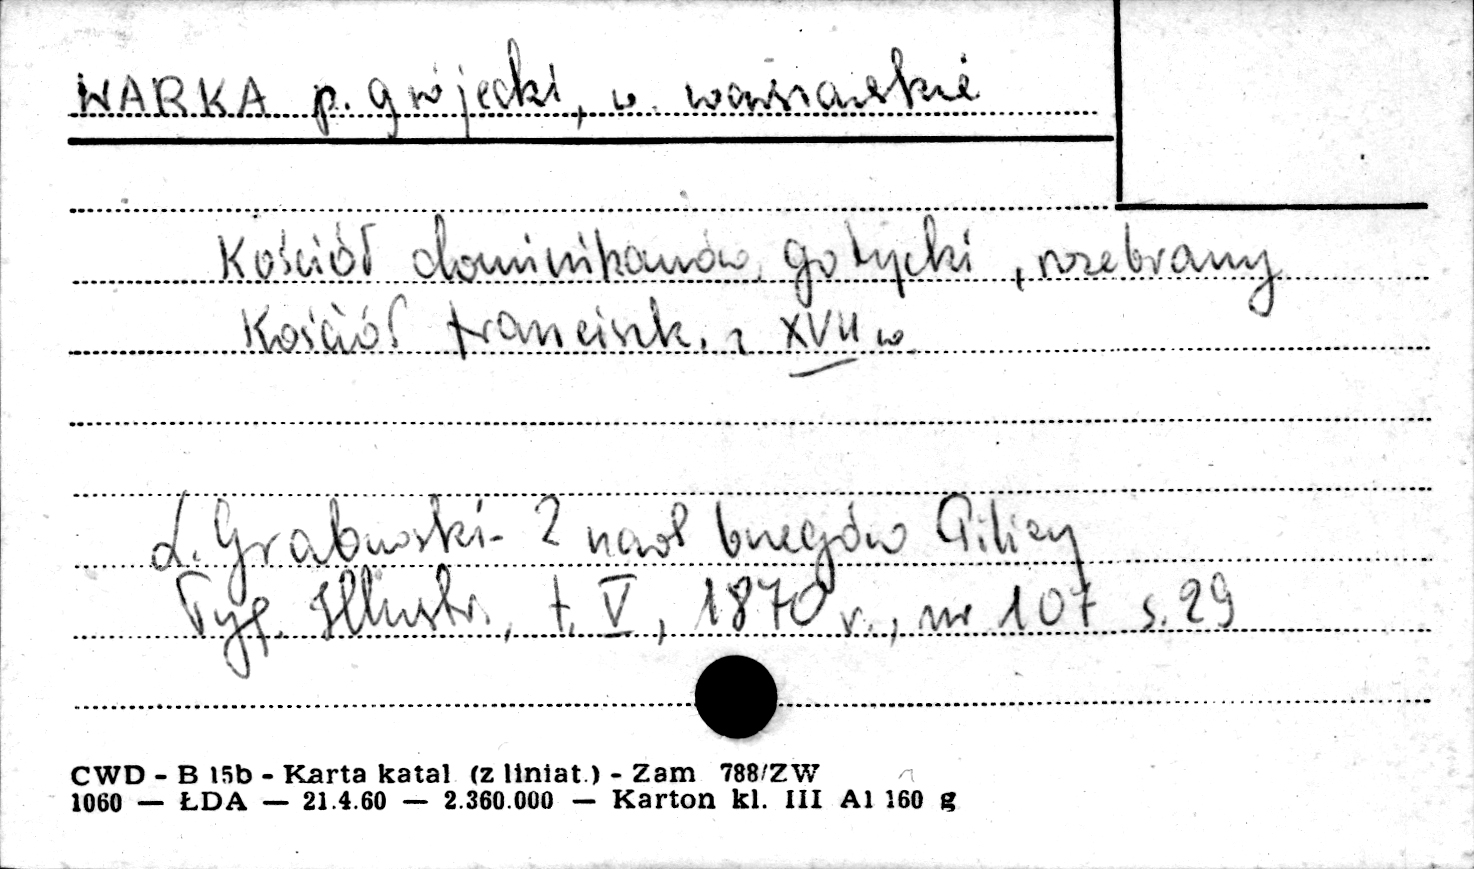 WARKA p. grójecki, w. warszawskie
Kościół dominikanów, gotycki, rozebrany
Kościół francisk. z XVII w.
L. Grabowski - Z nad brzegów Pilicy
Tyg. Illustr., t. V, 1870 r., nr 107 s. 29
CWD - B 15b - Karta katal (z liniat.) - Zam 788/ZW
1060 — ŁDA — 21.4.60 — 2.360.000 — Karton kl. III A1 160 g